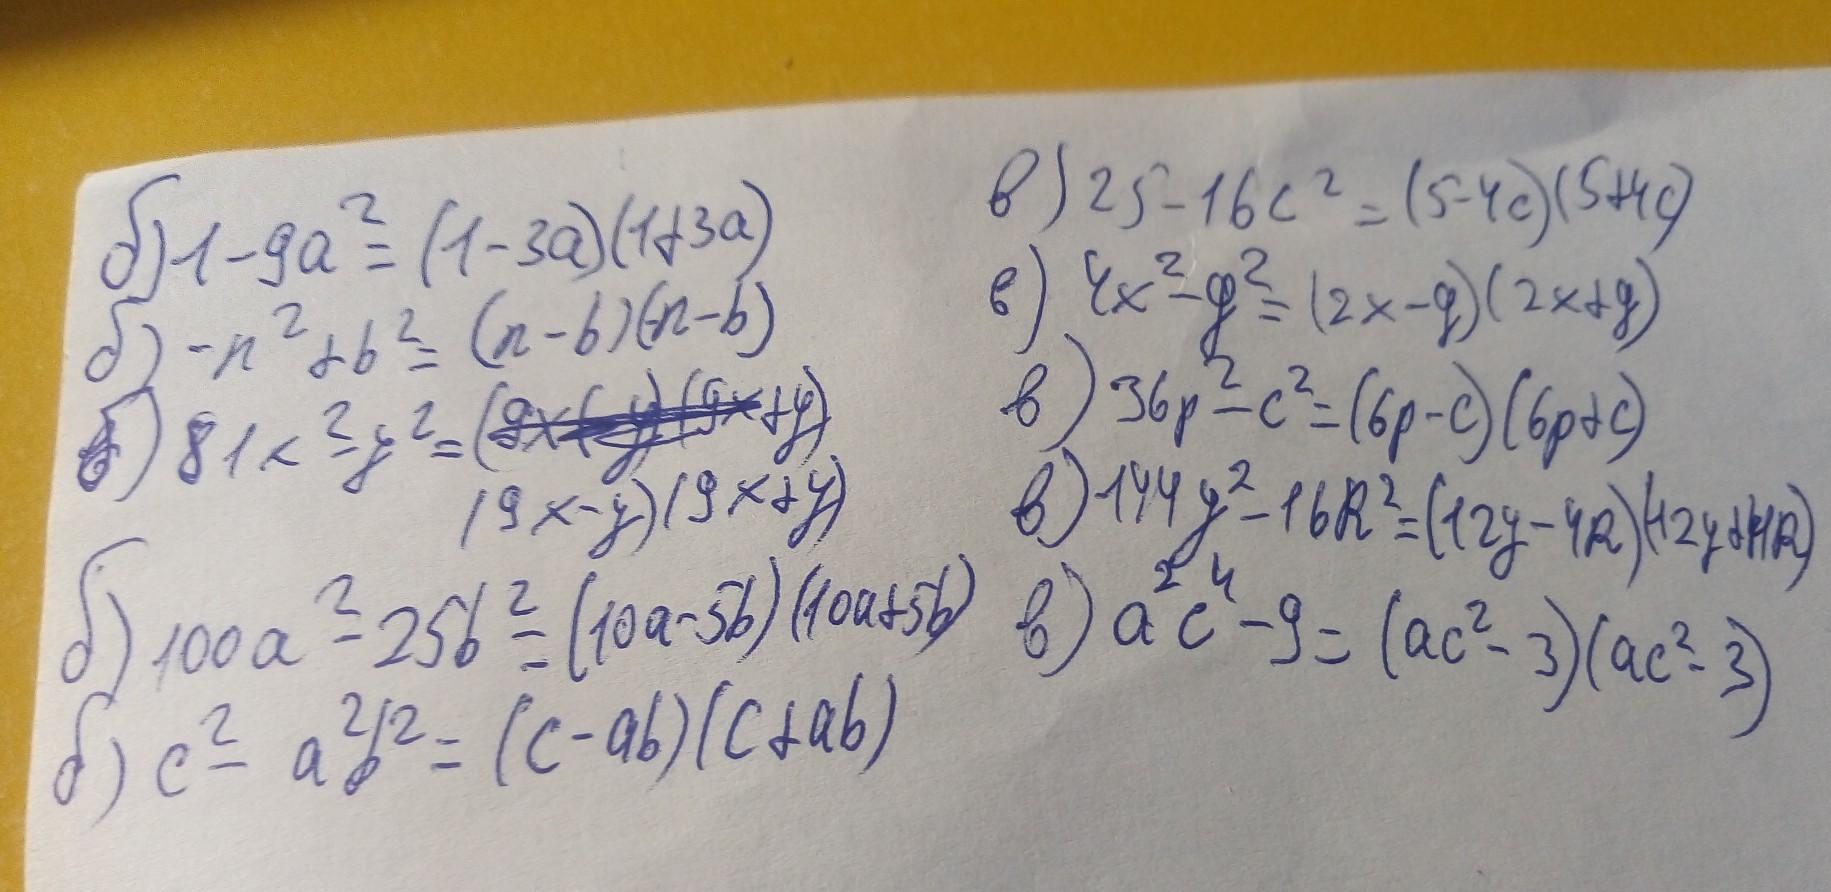 б) 1-9a² = (1-3a)(1+3a)
б) -n²+b² = (n-b)(-n-b)
б) 81x²-y² =
(9x-y)(9x+y)
б) 100a²-25b² = (10a-5b)(10a+5b)
б) c² - a²b² = (c-ab)(c+ab)
в) 25-16c² = (5-4c)(5+4c)
в) 4x²-y² = (2x-y)(2x+y)
в) 36p²-c² = (6p-c)(6p+c)
в) 144y²-16k² = (12y-4k)(12y+4k)
в) a²c⁴-9 = (ac²-3)(ac²-3)